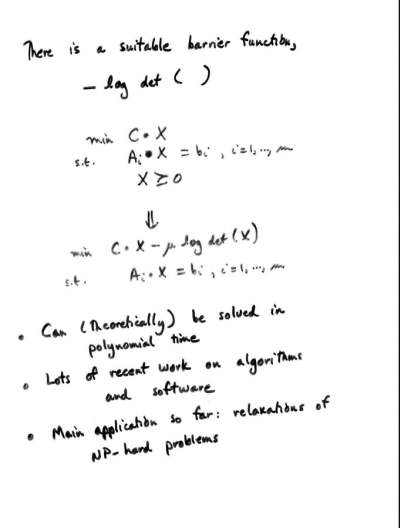 There is a suitable barrier function,
- log det ( )
min C • X
s.t. Ai • X = bi , i=1, ..., m
X ⪰ 0
⇓
min C • X - μ log det (X)
s.t. Ai • X = bi , i=1, ..., m
• Can (theoretically) be solved in
polynomial time
• Lots of recent work on algorithms
and software
• Main application so far: relaxations of
NP-hard problems